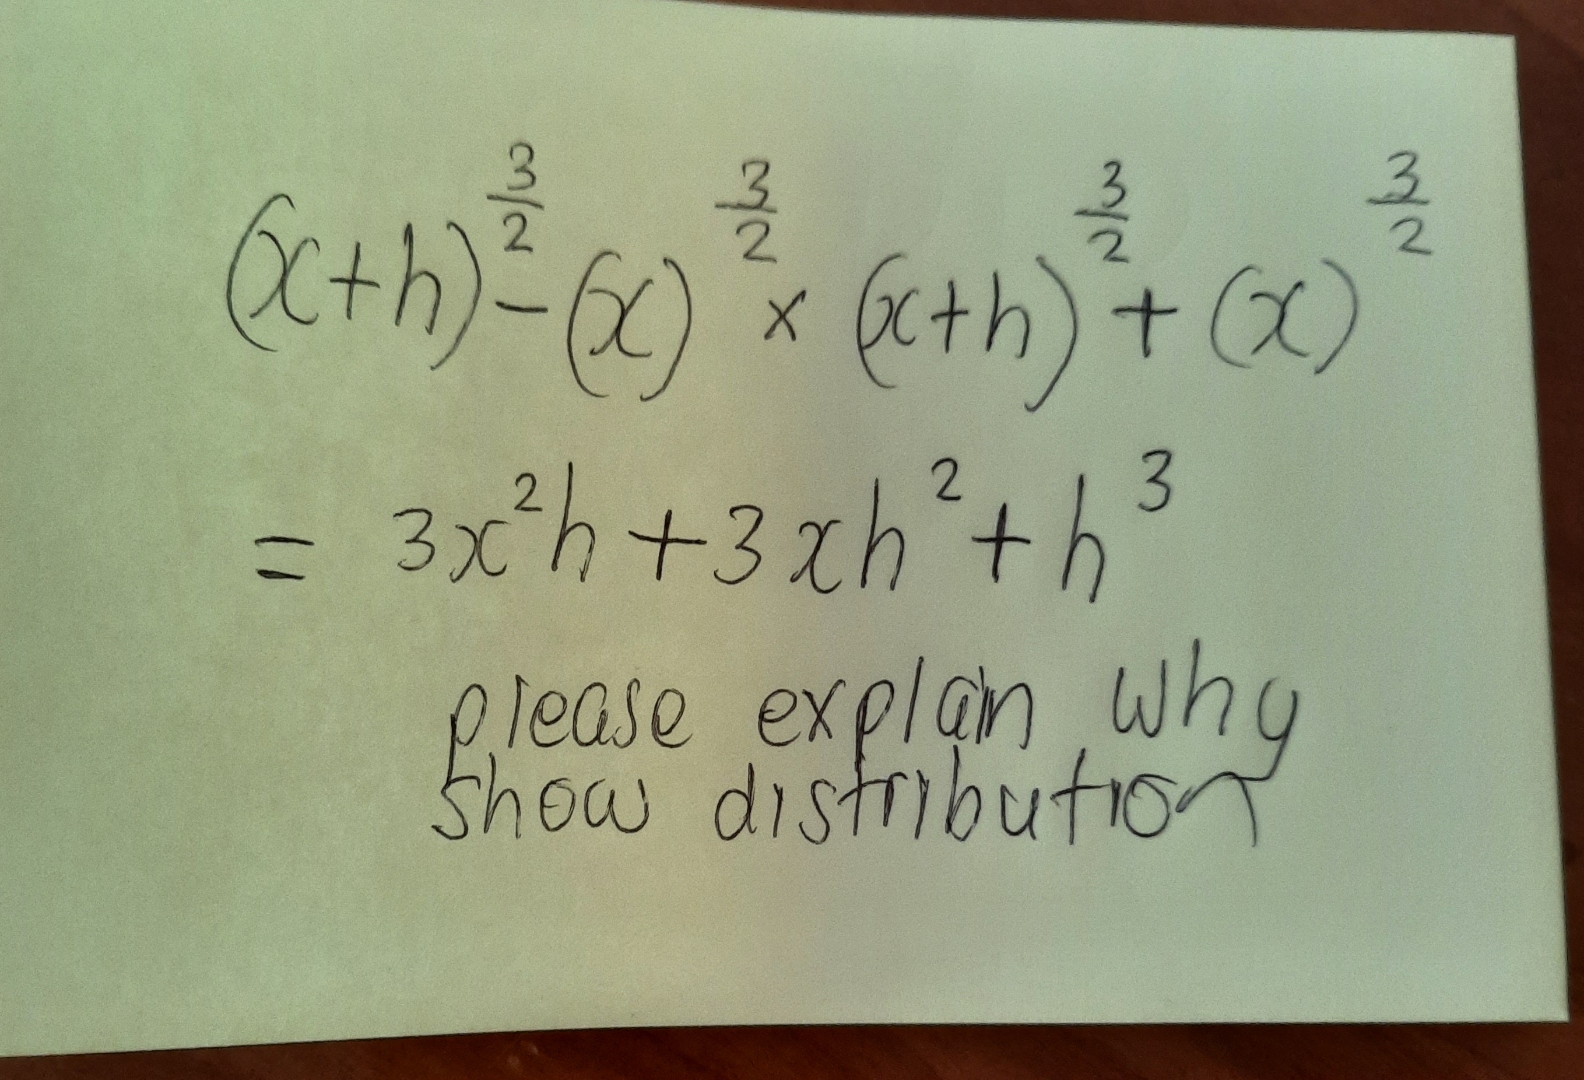 (x+h)^{3/2} - (x)^{3/2} × (x+h)^{3/2} + (x)^{3/2}
= 3x²h + 3xh² + h³
please explain why
show distribution